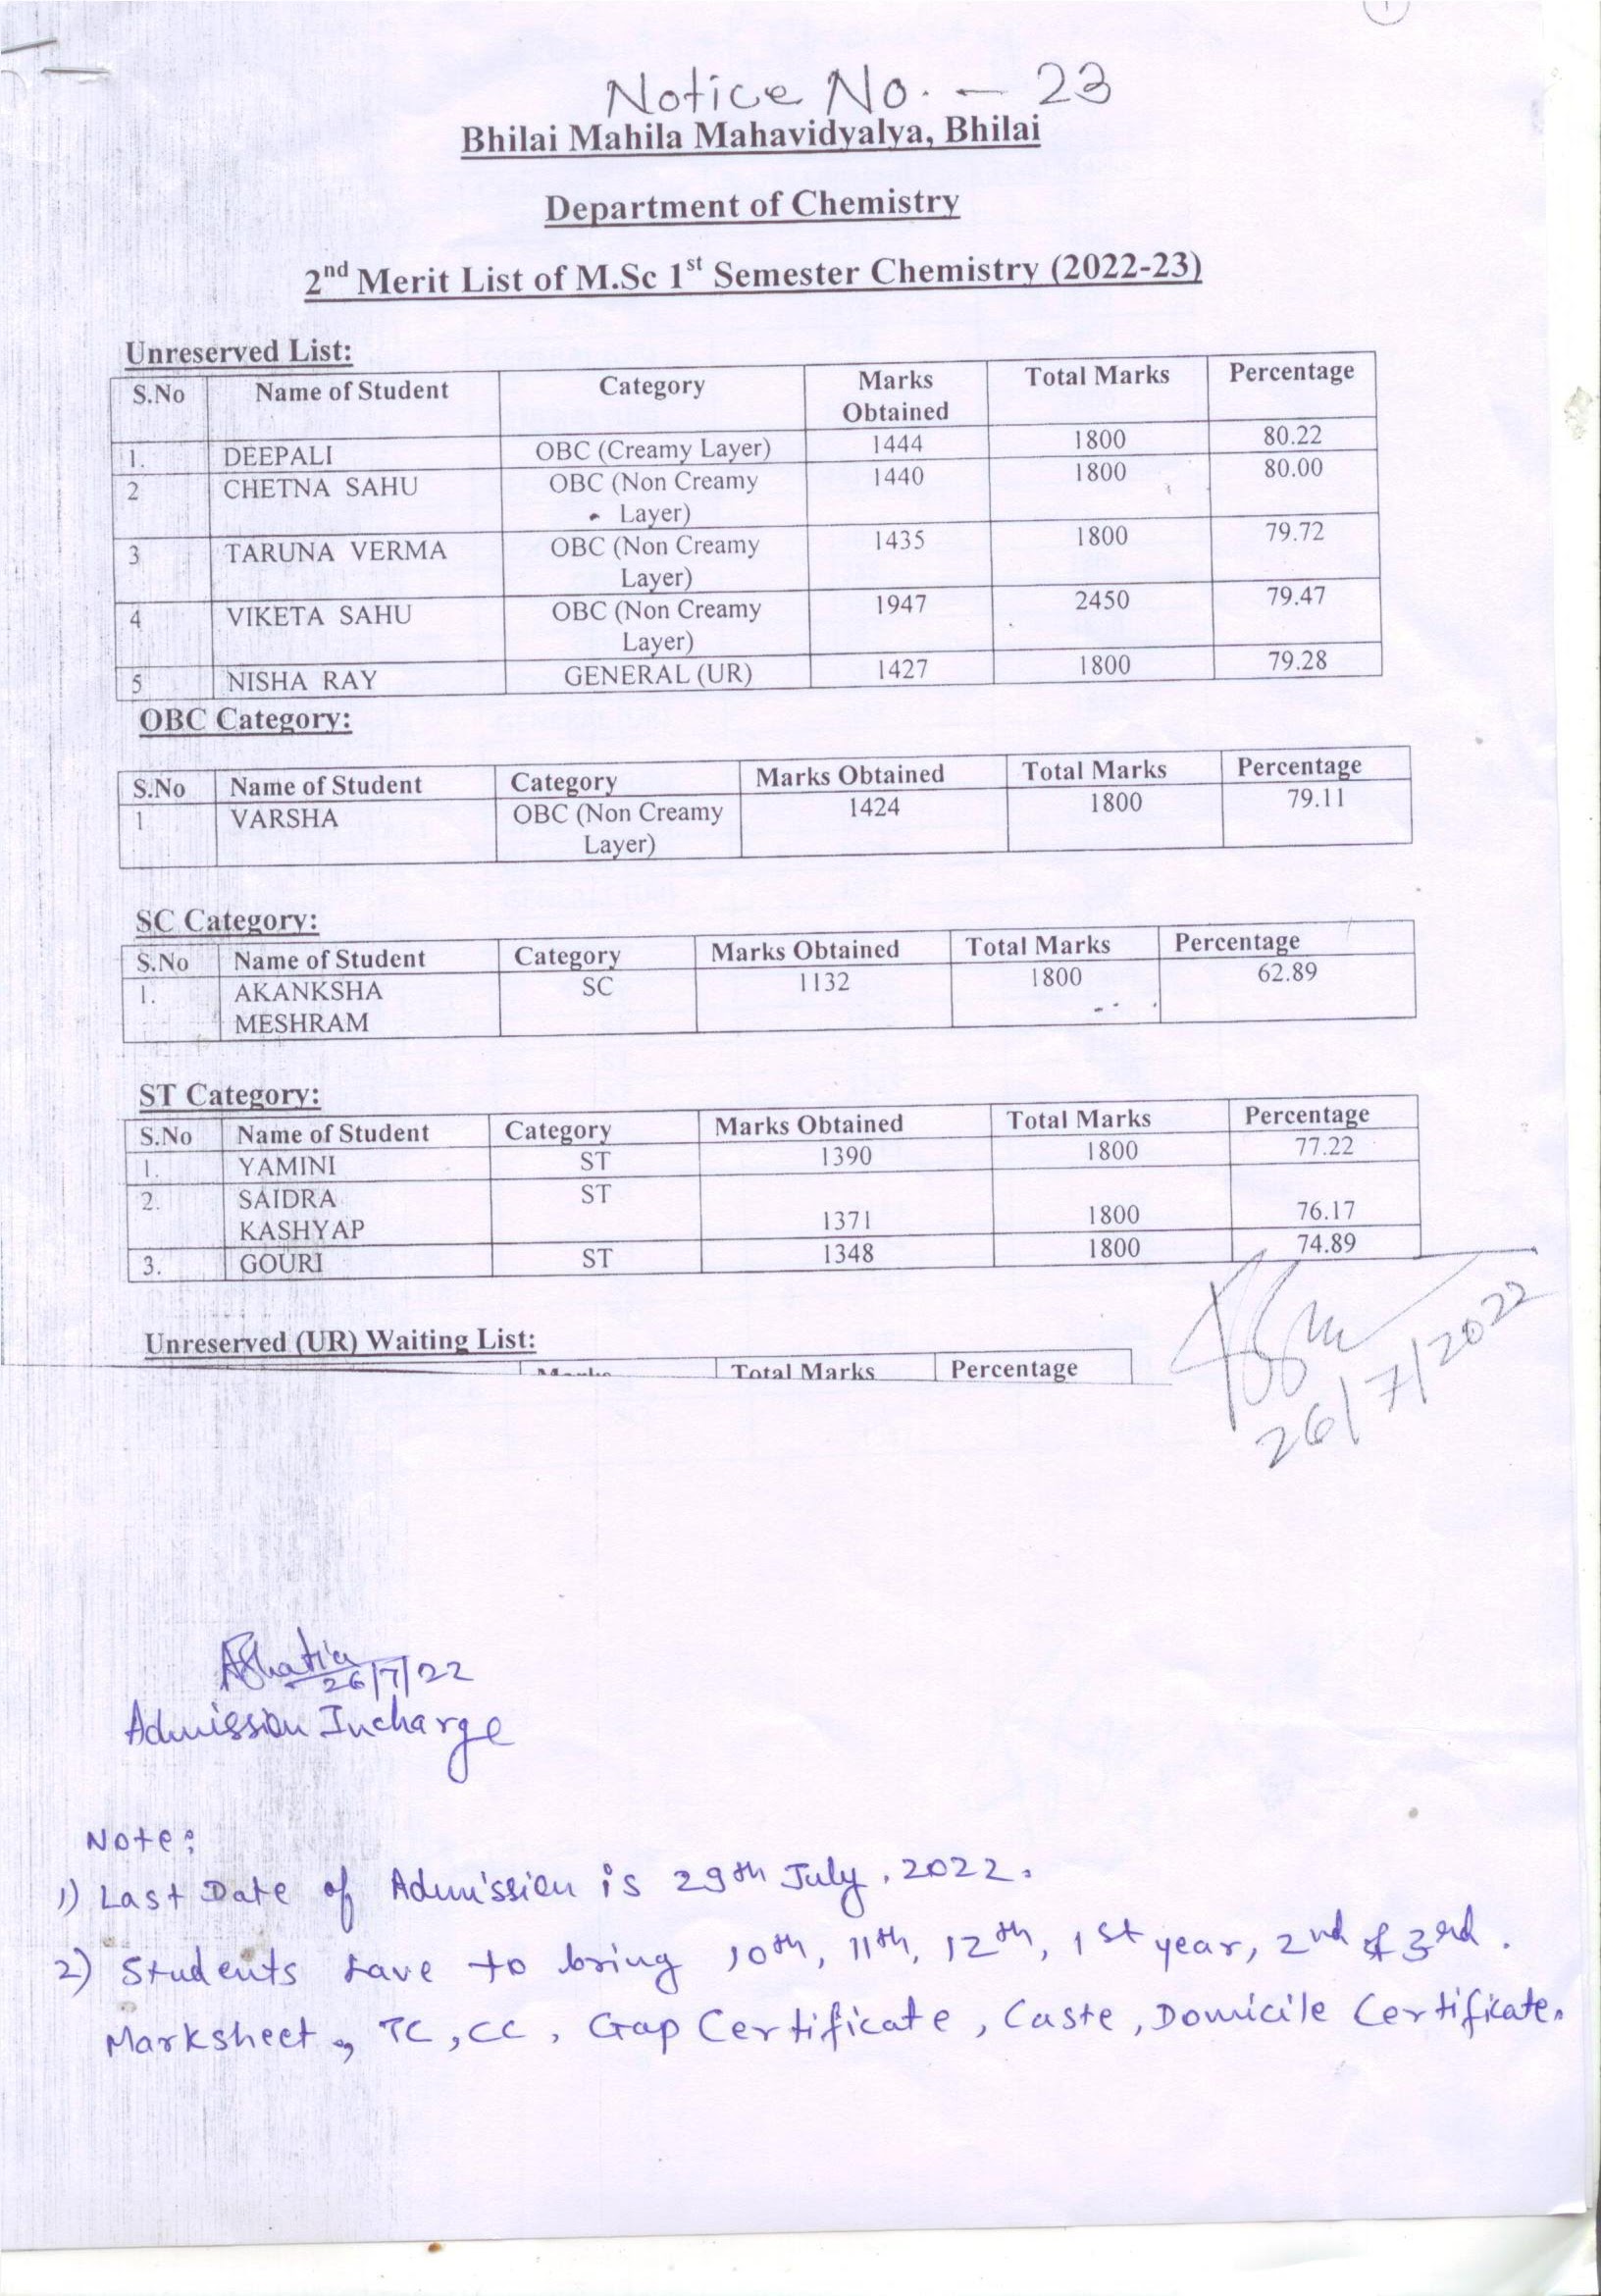 Notice No. - 23
Bhilai Mahila Mahavidyalya, Bhilai
Department of Chemistry
2nd Merit List of M.Sc 1st Semester Chemistry (2022-23)
Unreserved List:
S.No Name of Student Category Marks Obtained Total Marks Percentage
1. DEEPALI OBC (Creamy Layer) 1444 1800 80.22
2 CHETNA SAHU OBC (Non Creamy Layer) 1440 1800 80.00
3 TARUNA VERMA OBC (Non Creamy Layer) 1435 1800 79.72
4 VIKETA SAHU OBC (Non Creamy Layer) 1947 2450 79.47
5 NISHA RAY GENERAL (UR) 1427 1800 79.28
OBC Category:
S.No Name of Student Category Marks Obtained Total Marks Percentage
1 VARSHA OBC (Non Creamy Layer) 1424 1800 79.11
SC Category:
S.No Name of Student Category Marks Obtained Total Marks Percentage
1. AKANKSHA MESHRAM SC 1132 1800 62.89
ST Category:
S.No Name of Student Category Marks Obtained Total Marks Percentage
1. YAMINI ST 1390 1800 77.22
2. SAIDRA KASHYAP ST 1371 1800 76.17
3. GOURI ST 1348 1800 74.89
Unreserved (UR) Waiting List:
Total Marks Percentage
26/7/2022
26/7/22
Admission Incharge
Note:
1) Last Date of Admission is 29th July, 2022.
2) Students have to bring 10th, 11th, 12th, 1st year, 2nd & 3rd.
Marksheet, TC, CC, Gap Certificate, Caste, Domicile Certificate.